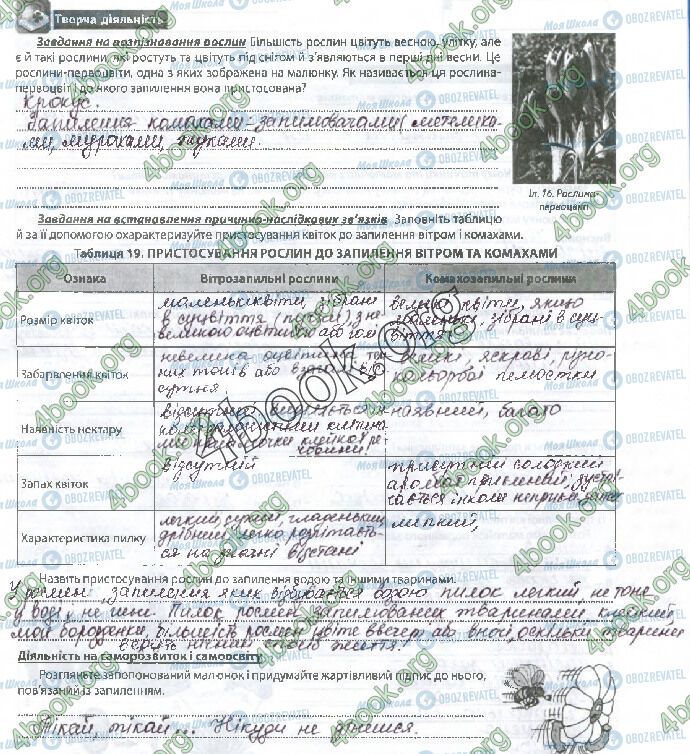 Творча діяльність
Завдання на розпізнавання рослин Більшість рослин цвітуть весною, улітку, але
є й такі рослини, які ростуть та цвітуть під снігом й з'являються в перші дні весни. Це
рослини-первоцвіти, одна з яких зображена на малюнку. Як називається ця рослина-
первоцвіт і до якого запилення вона пристосована?
Крокус.
Запилення комахами-запилювачами (метелика-
ми, мурахами, жуками.
Іл. 16. Рослина-
первоцвіт
Завдання на встановлення причинно-наслідкових зв'язків Заповніть таблицю
й за її допомогою охарактеризуйте пристосування квіток до запилення вітром і комахами.
Таблиця 19. ПРИСТОСУВАННЯ РОСЛИН ДО ЗАПИЛЕННЯ ВІТРОМ ТА КОМАХАМИ
Ознака Вітрозапильні рослини Комахозапильні рослини
Розмір квіток
маленькі квіти, зібрані
в суцвіття з не-
великою оцвітиною або голі
великі квіти, якщо
маленькі, зібрані в суц-
віття
Забарвлення квіток
невелика оцвітина
них тонів або взагалі від-
сутня.
великі, яскраві, різно-
кольорові пелюстки
Наявність нектару
відсутній
клейкої ре-
човини!
наявний, багато
Запах квіток
відсутній
присутній солодкий
аромат приємний, зустрі-
чається інколи неприєм. запах
Характеристика пилку
легкий, сухий, гладенький,
дрібний, легко розлітаєть-
ся на великі відстані
липкий,
Назвіть пристосування рослин до запилення водою та іншими тваринами.
У рослин, запилення яких відбувається водою пилок легкий не тоне
у воді и не гине. Пилок рослин, запилюваних тваринами клейкий,
має борозенки, більшість рослин цвіте ввечері, або вночі, оскільки тварини
ведуть нічний спосіб життя!
Діяльність на саморозвиток і самоосвіту
Розгляньте запопонований малюнок і придумайте жартівливий підпис до нього,
пов'язаний із запиленням.
Тікай, тікай... Нікуди не дінешся.